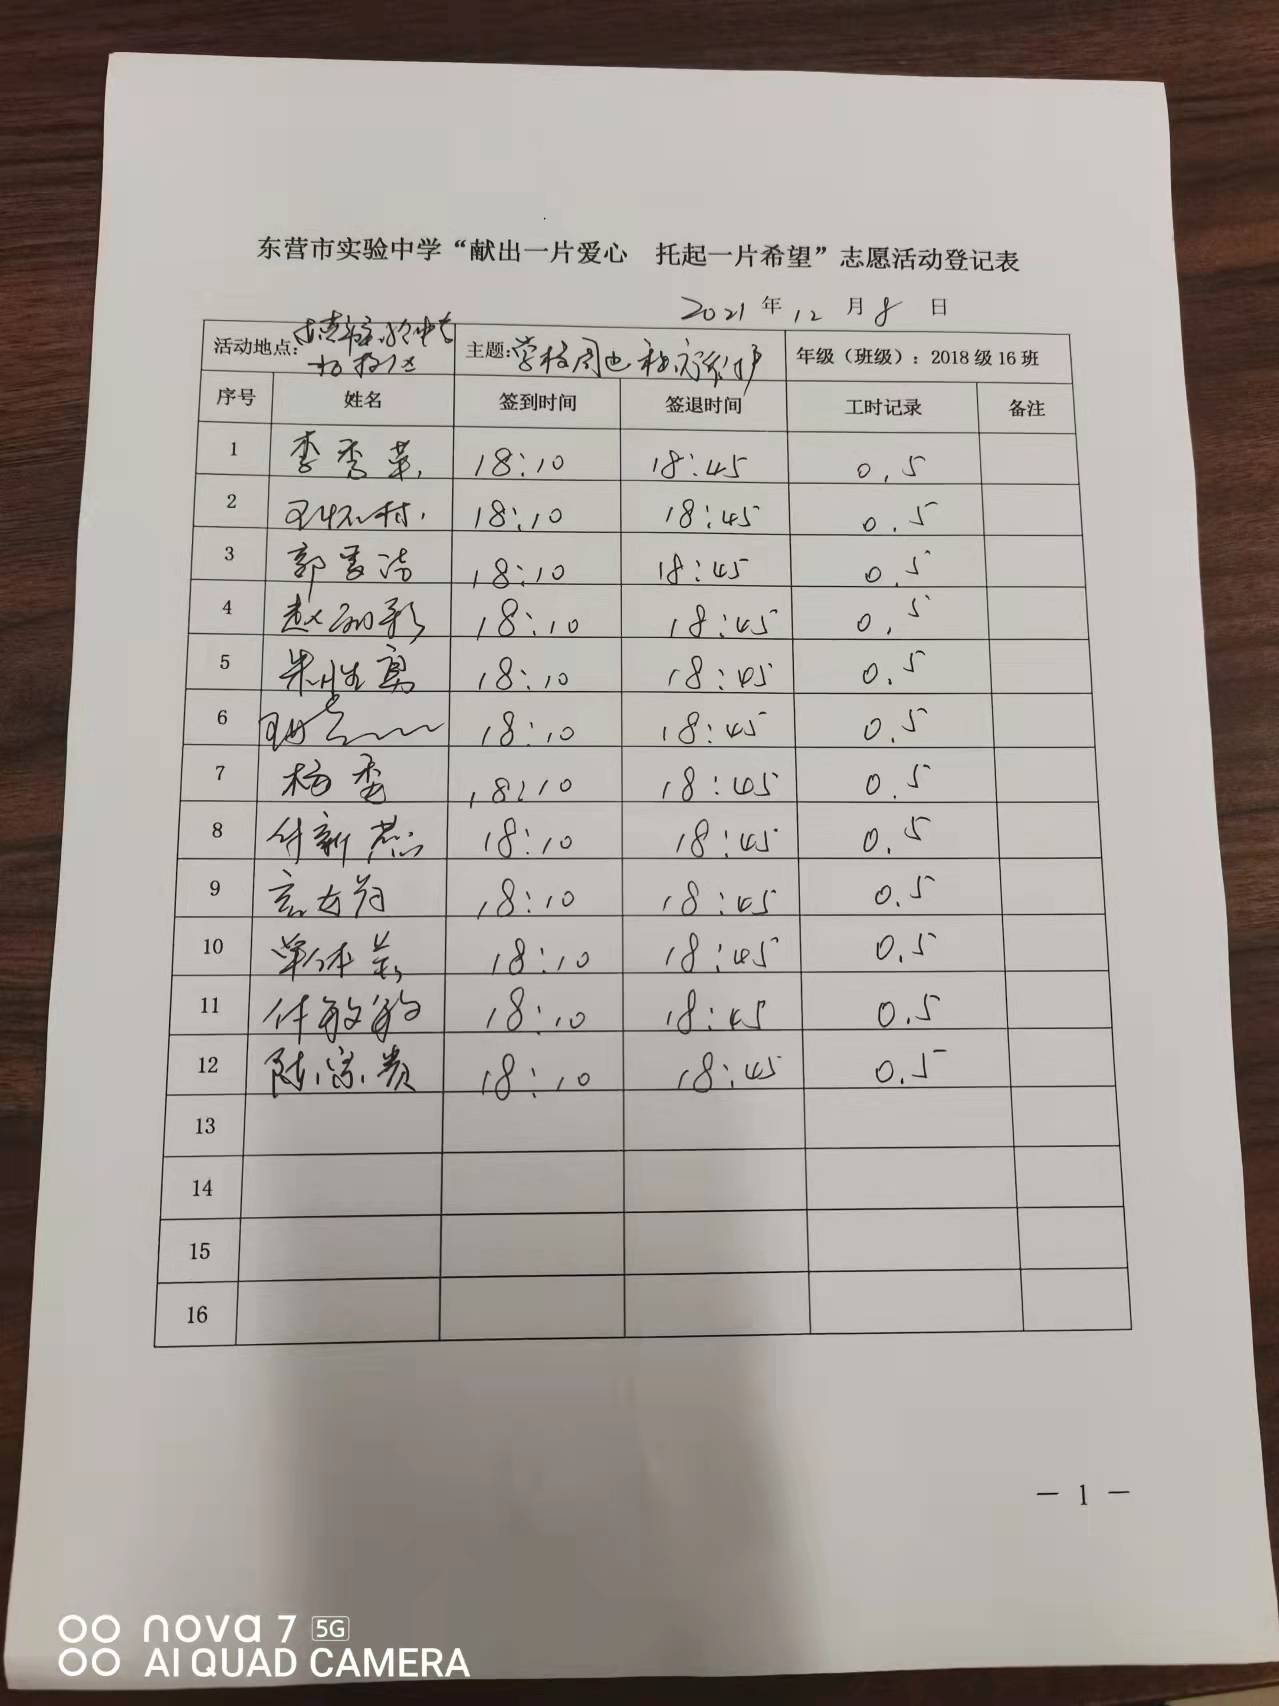 东营市实验中学“献出一片爱心 托起一片希望”志愿活动登记表
2021 年 12 月 8 日
活动地点: 主题: 学校周边 年级（班级）: 2018 级 16 班
序号 姓名 签到时间 签退时间 工时记录 备注
1 李秀 18:10 18:45 0.5
2 18:10 18:45 0.5
3 郭 18:10 18:45 0.5
4 赵 18:10 18:45 0.5
5 朱 18:10 18:45 0.5
6 18:10 18:45 0.5
7 杨 18:10 18:45 0.5
8 付新燕 18:10 18:45 0.5
9 18:10 18:45 0.5
10 18:10 18:45 0.5
11 任敏敏 18:10 18:45 0.5
12 陈宗贵 18:10 18:45 0.5
13
14
15
16
— 1 —
nova 7 5G
AI QUAD CAMERA